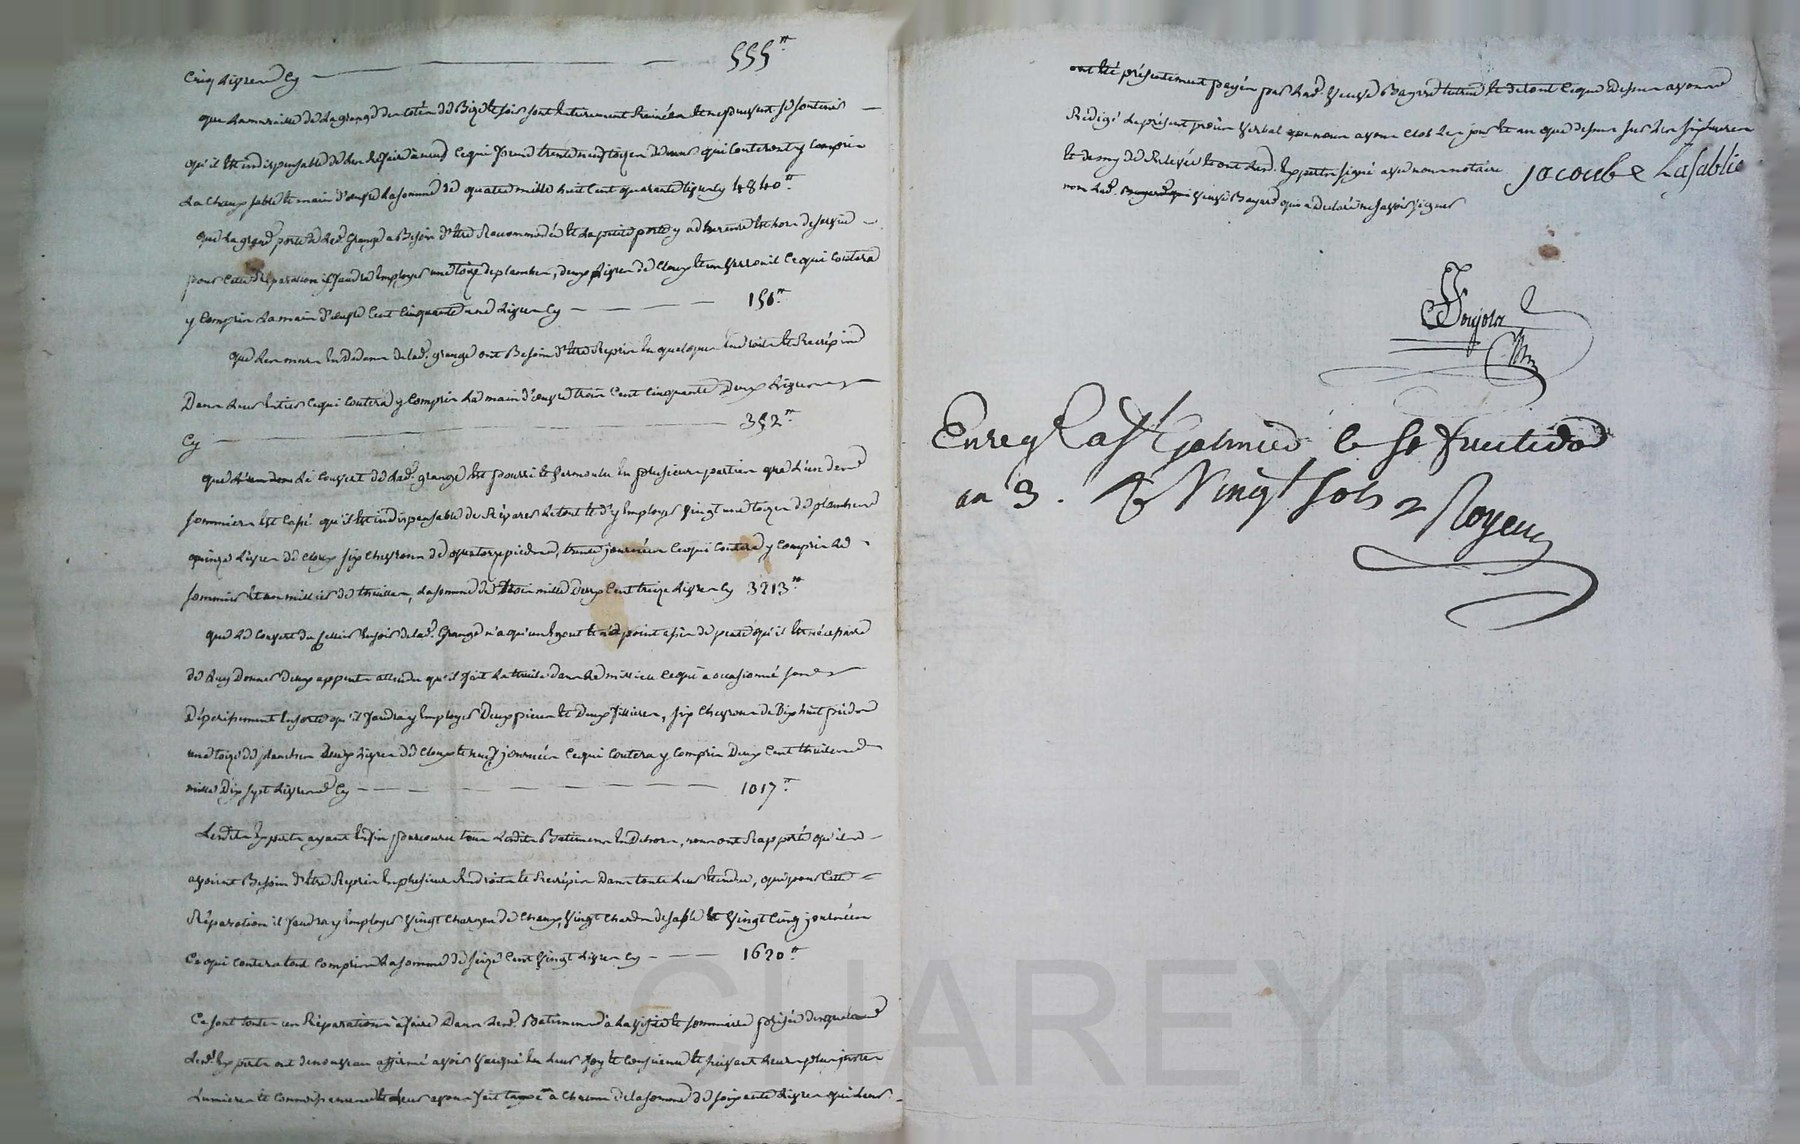 Cinq livres Cy 555ᵗᵗ
que la muraille de la grange du coté de Bize et soir sont entierement Ruinées et ne peuvent se soutenir
qu'il est indispensable de les Refaire à neuf ce qui prend trente neuf toizes de murs qui couteront y compris
la chaux sable et main d'œuvre la somme de quatre mille huit cent quarante livres Cy 4840ᵗᵗ
que la grand porte de lad. Grange a Besoin d'être Racommodée et la petite porte y adherente est hors de service
pour cette Réparation il faudra Employer une toize de planches, deux livres de Cloux et un verrouil ce qui coutera
y compris la main d'œuvre Cent Cinquante une livres Cy 151ᵗᵗ
que les murs en Dedans de lad. grange ont Besoin d'être Repris en quelques Endroits et Recrépis
Dans leur entier ce qui coutera y compris la main d'œuvre trois Cent Cinquante Deux livres
Cy 352ᵗᵗ
que le couvert de lad. grange est pourri et vermoulu en plusieurs parties que l'un des
sommiers est Cassé qu'il est indispensable de Réparer le tout et d'y Employer vingt une toizes de planches
quinze livres de Cloux six chevrons de quatorze pieds, trente journées ce qui coutera y compris le
sommier et un millier de thuilles, la somme de trois mille Deux Cent treize livres Cy 3213ᵗᵗ
que le Couvert du cellier au soir de lad. Grange n'a qu'un Egout et n'a point assés de pente qu'il est nécessaire
de luy Donner Deux appents attendu qu'il jette la thuile dans le milieu ce qui a occasionné son
Déperissement en sorte qu'il faudra y Employer Deux pieces et Deux filliers, six chevrons de Dix huit pieds
une toize de planches Deux livres de Cloux et neuf journées ce qui coutera y compris Deux Cent thuiles
mille Dix sept livres Cy 1017ᵗᵗ
Lesdits Experts ayant Enfin parcouru tous lesdits Batimens en Dehors, nous ont Rapporté qu'ils
avoient Besoin d'être Repris en plusieurs Endroits et Recrépis Dans toute leur Etendue, que pour cette
Réparation il faudra y Employer vingt charges de Chaux, vingt chards de sable et vingt Cinq journées
ce qui coutera tout compris la somme de seize Cent vingt livres Cy 1620ᵗᵗ
Ce sont toutes les Réparations à faire Dans lesd. Batimens à la visite et sommaire prisée desquelles
lesd. Experts ont de nouveau affirmé avoir vacqué en leur foy et Conscience et suivant leurs plus justes
lumieres et connoissances et leur avons fait taxe à chacun de la somme de soixante livres qui leur
ont été présentement payés par lad. veuve Bayard et de tout ce que dessus avons
Rédigé le présent procès verbal que nous avons Clos les jour et an que dessus sur les six heures
et demy de Relevée et ont lesd. Experts signé avec nous notaire Jacoube Lasablie
non lad. veuve Bayard qui a declaré ne savoir signer
Enreg à St Galmier le 30 fructidor
an 3. R vingt sols Royeu
CHAREYRON